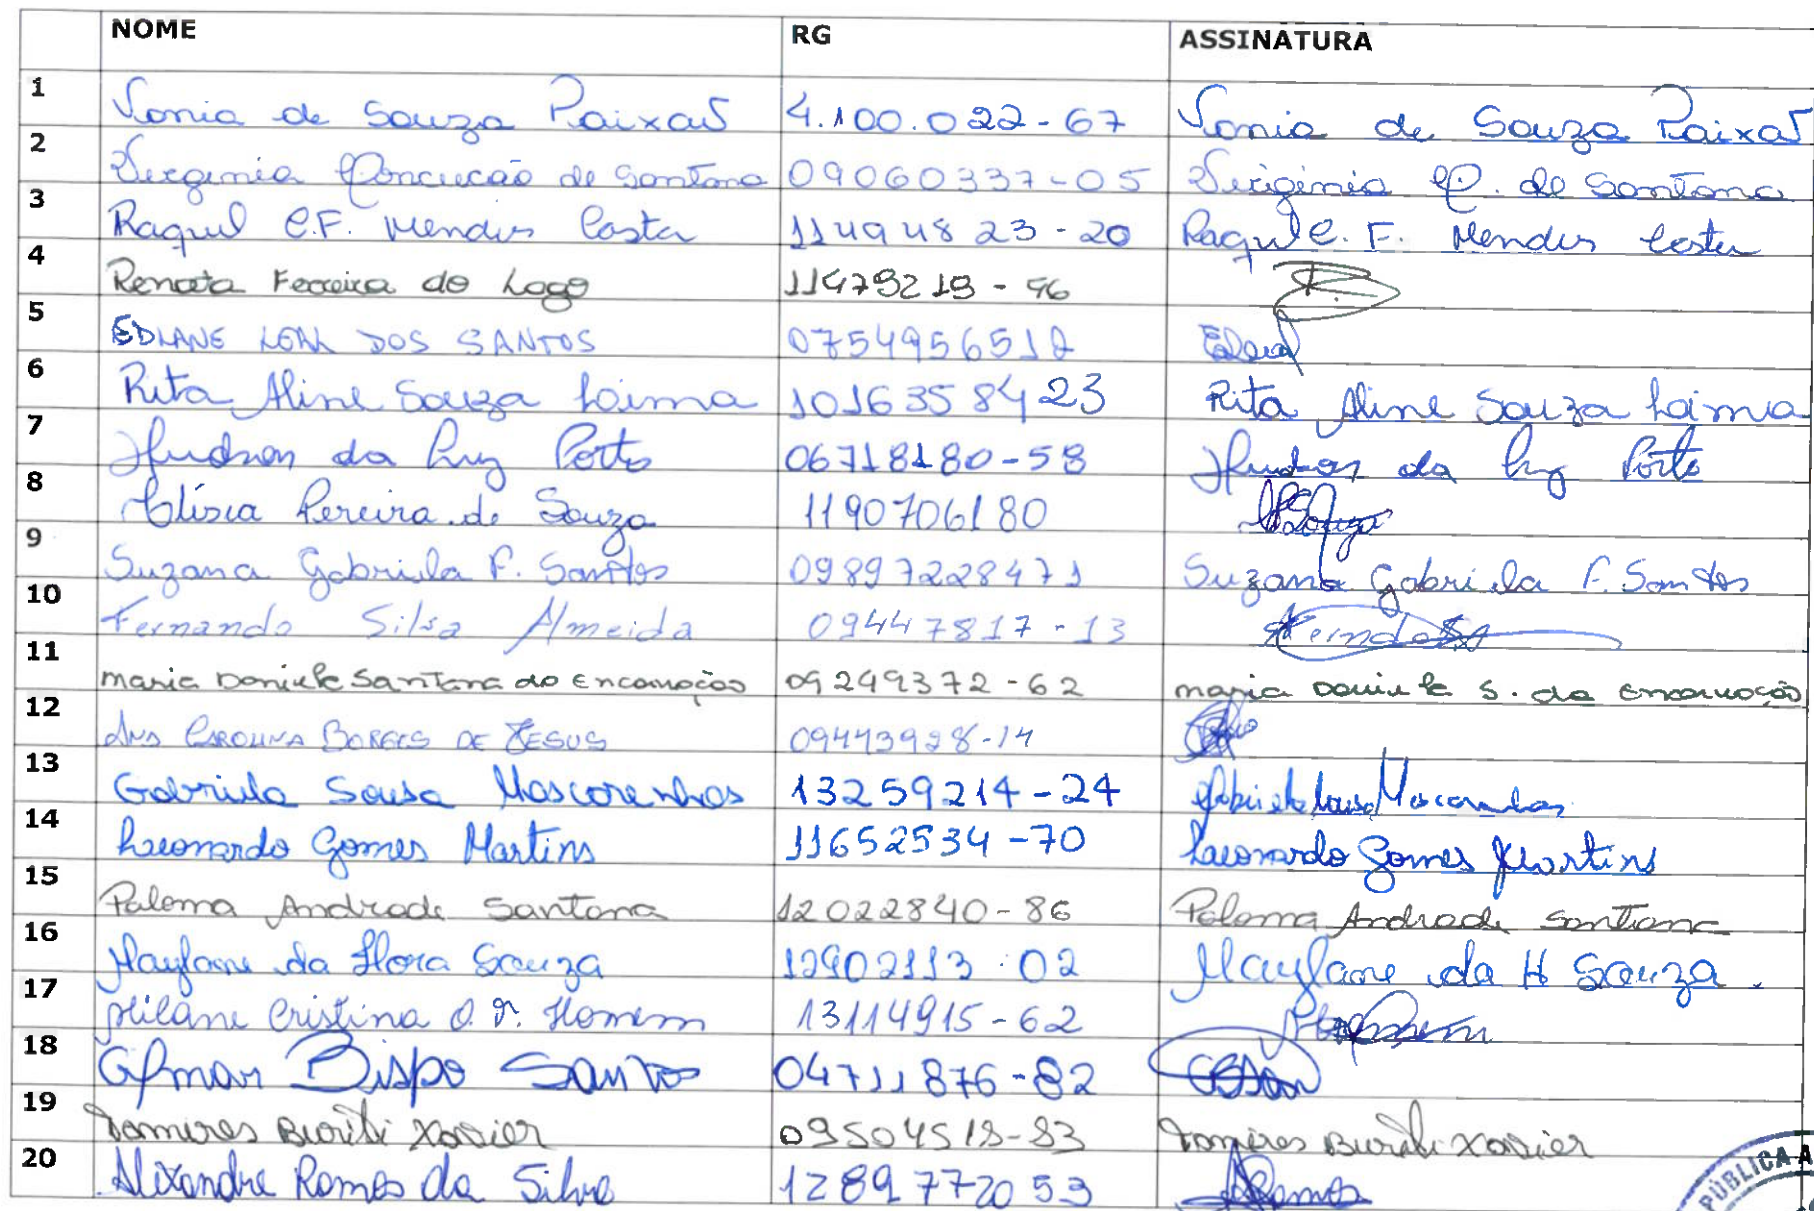 NOME RG ASSINATURA
1 Sonia de Souza Paixão 4.100.022-67 Sonia de Souza Paixão
2 Virgenia Conceicão de Santana 09060337-05 Virigínia C. de Santana
3 Raquel C.F. Mendes Costa 11494823-20 Raquel C. F. Mendes Costa
4 Renata Ferreira do Lago 11479219-96
5 EDLANE LEAL DOS SANTOS 0754956512
6 Rita Aline Souza Laima 1016358423 Rita Aline Souza Laima
7 Hudson da Luz Porto 06718180-58 Hudson da Luz Porto
8 Clísia Pereira de Souza 1190706180
9 Suzana Gabriela F. Santos 09897228471 Suzana Gabriela F. Santos
10 Fernando Silva Almeida 09447817-13
11 maria Daniele Santana da Encarnação 09249372-62 maria Daniele S. da Encarnação
12 ANA CAROLINA BORGES DE JESUS 09443928-14
13 Gabriela Sousa Mascarenhas 13259214-24 Gabriela Sousa Mascarenhas
14 Leonardo Gomes Martins 11652534-70 Leonardo Gomes Martins
15 Paloma Andrade Santana 12022840-86 Paloma Andrade Santana
16 Maylane da Hora Souza 12902113-02 Maylane da H Souza.
17 Milane Cristina O. Homem 13114915-62
18 Gilmar Bispo Santos 04711876-82
19 Tamires Buriti Xavier 09504518-83 Tamires Buriti Xavier
20 Alexandre Ramos da Silva 1289772053 Ramos
PÚBLICA A